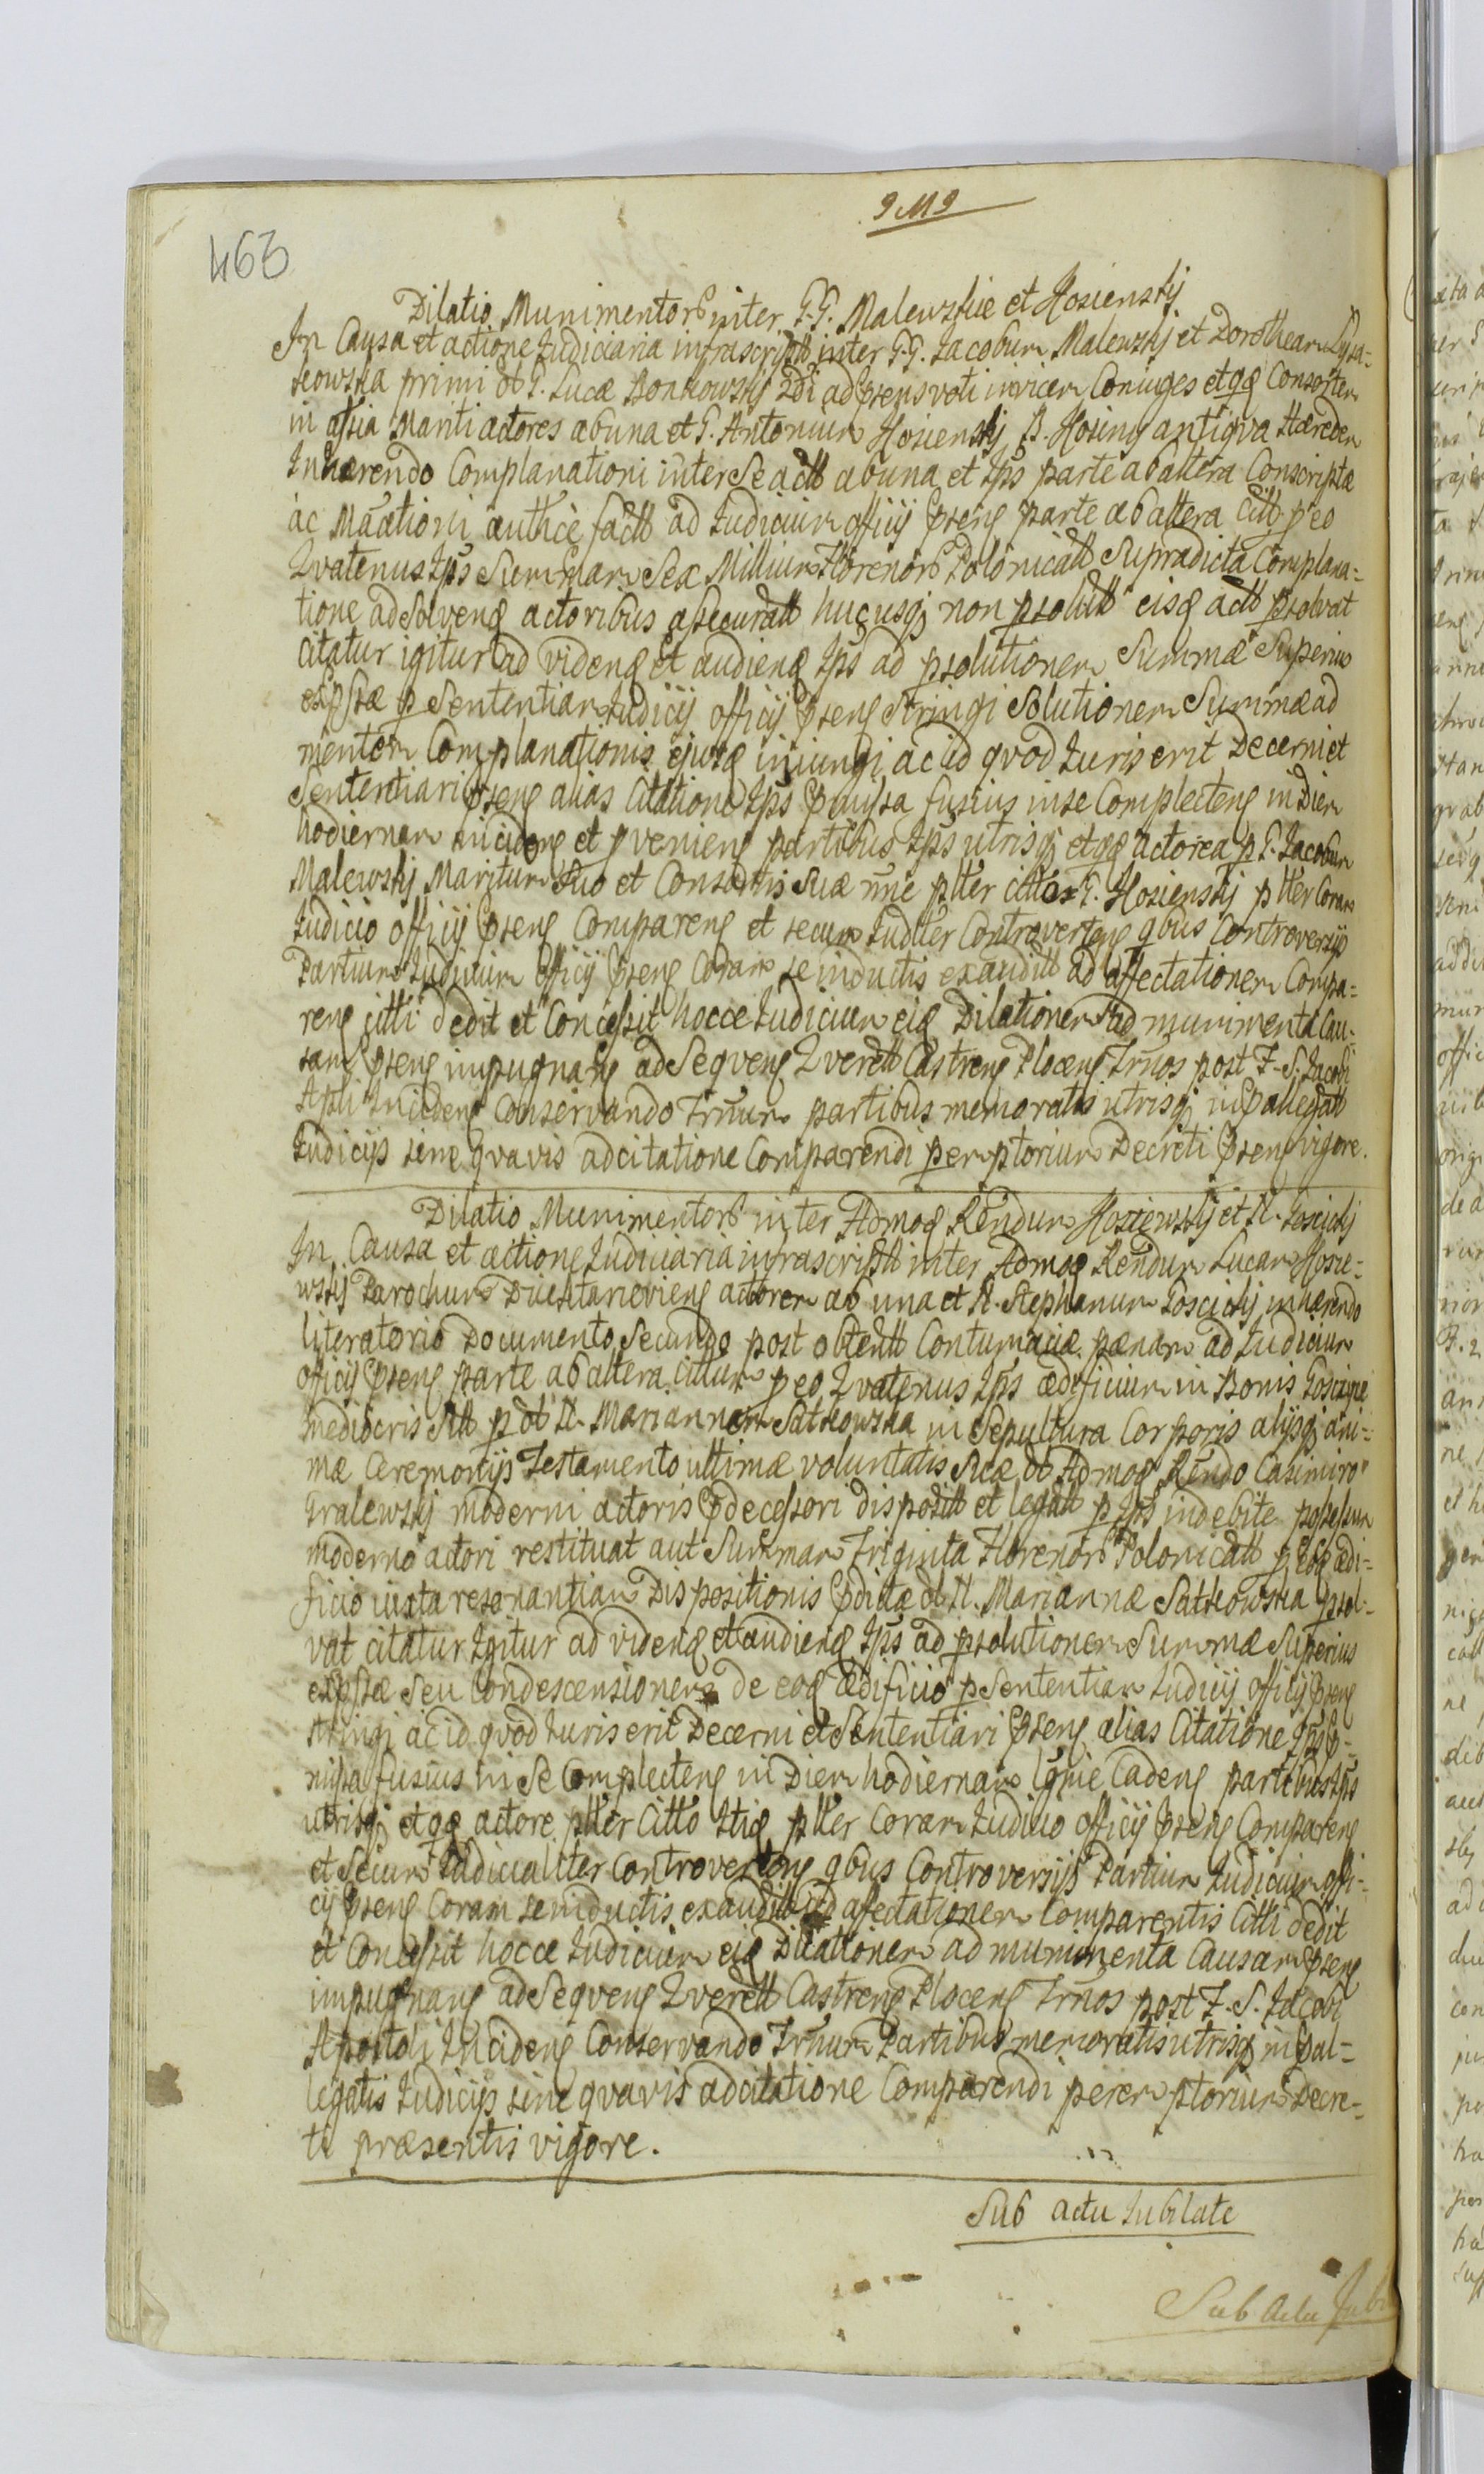 9M9
463
Dilatio Munimentor inter G.G. Malewskie et Hosienskj
In Causa et actione Judiciaria infrascriptt inter G.G. Jacobum Malewskj et Dorotheam Lysa=
kowska primi ol G. Lucæ Bonkowskj 2di ad prens voti invicem Coniuges etqq Consortem
in assia Mariti actores ab una et G. Antonium Hosienskj B. Hosiny antiqva Hæredem
Inhærendo Complanationi inter Se actt ab una et Ips parte ab altera Conscriptæ
ac Manationi authce factt ad Judicium officij prens parte ab altera citt p eo
Qvatenus Ips Summam Sex Millium Florenor Polonicatt Supradicta Complana=
tione ad Solvend actoribus assecuratt hucusqj non psolutt eisq actt psolvat
citatur igitur ad videnq et audienq Ips ad psolutionem Summæ Superius
expssæ p Sententiam Judicij officij prens stringi Solutionem Summæ ad
mentem Complanationis ejusq iniungi ac id qvod Juris erit Decerni et
Sententiari prens alias Citatione Ips pmissa fusius in se Complectens in Diem
hodiernam incidens et pveniens partibus Ips utrisqj etqq actorea p G. Jacobum
Malewskj Maritum Suo et Consortis Suæ nne ptter citto G. Hosienskj ptter Coram
Judicio officij prens Comparens et secum Judtter Controvertens qbus Controversijs
Partium Judicium Officij prens Coram se inductis exauditt ad affectationem Compa=
rens citti dedit et Concessit hocce Judicium eiq Dilationem ad munimenta Cau=
sam prens impugnans ad Seqvens Qverett Castrens Plocens Trnos post F. S. Jacobi
Apli Incidens Conservando Trnum partibus memoratis utrisqj in pallegatt
Judicijs sine qvavis adcitatione Comparendi peremptorium Decreti prens vigore.
Dilatio Munimentor inter Admoq Rendum Hosiewskj et N. Goscickj
In Causa et actione Judiciaria infrascriptt inter Admoq Rendum Lucam Hosie=
wskj Parochum actorem ab una et N. Stephanum Goscickj inhærendo
literatorio Documento Secundo post obtentt Contumaciæ pænam ad Judicium
officij prens parte ab altera Cittum p eo Qvatenus Ips ædificium in Bonis
mediocris Sitt p ol N. Mariannam Sutkowska in Sepultura Corporis alijsqj ani=
mæ Ceremonijs Testamento ultimæ voluntatis Suæ ol Admoq Rendo Casimiro
Gralewskj moderni actoris pdecessori dispositt et legatt p Ips indebite possessum
moderno actori restituat aut Summam Triginta Florenor Polonicatt p eoq ædi=
ficio iuxta resonantiam Dispositionis pdictæ ol N. Mariannæ Sutkowska psol=
vat citatur Igitur ad videnq et audienq Ips ad psolutionem Summæ Superius
expssæ seu Condescensionem de eoq ædificio p Sententiam Judicij officij prens
stringi ac id qvod Juris erit Decerni et Sententiari prens alias Citatione Ips p=
missa fusius in Se Complectens in Diem hodiernam Cadens partibus Ips
utrisqj etqq actore ptter Citto Itiq ptter Coram Judicio officij prens Comparens
et Secum Judicialiter Controvertens qbus Controversijs Partium Judicium offi=
cij prens Coram se inductis exauditt ad affectationem Comparentis Citti dedit
et Concessit hocce Judicium eiq Dilationem ad munimenta Causam prens
impugnans ad Seqvens Qverett Castrens Plocens Trnos post F. S. Jacobi
Apostoli Incidens Conservando Trnum Partibus memoratis utrisq in pal=
legatis Judicijs sine qvavis adcitatione Comparendi peremptorium Decre=
ti præsentis vigore.
Sub actu Jubilate
Sub Actu